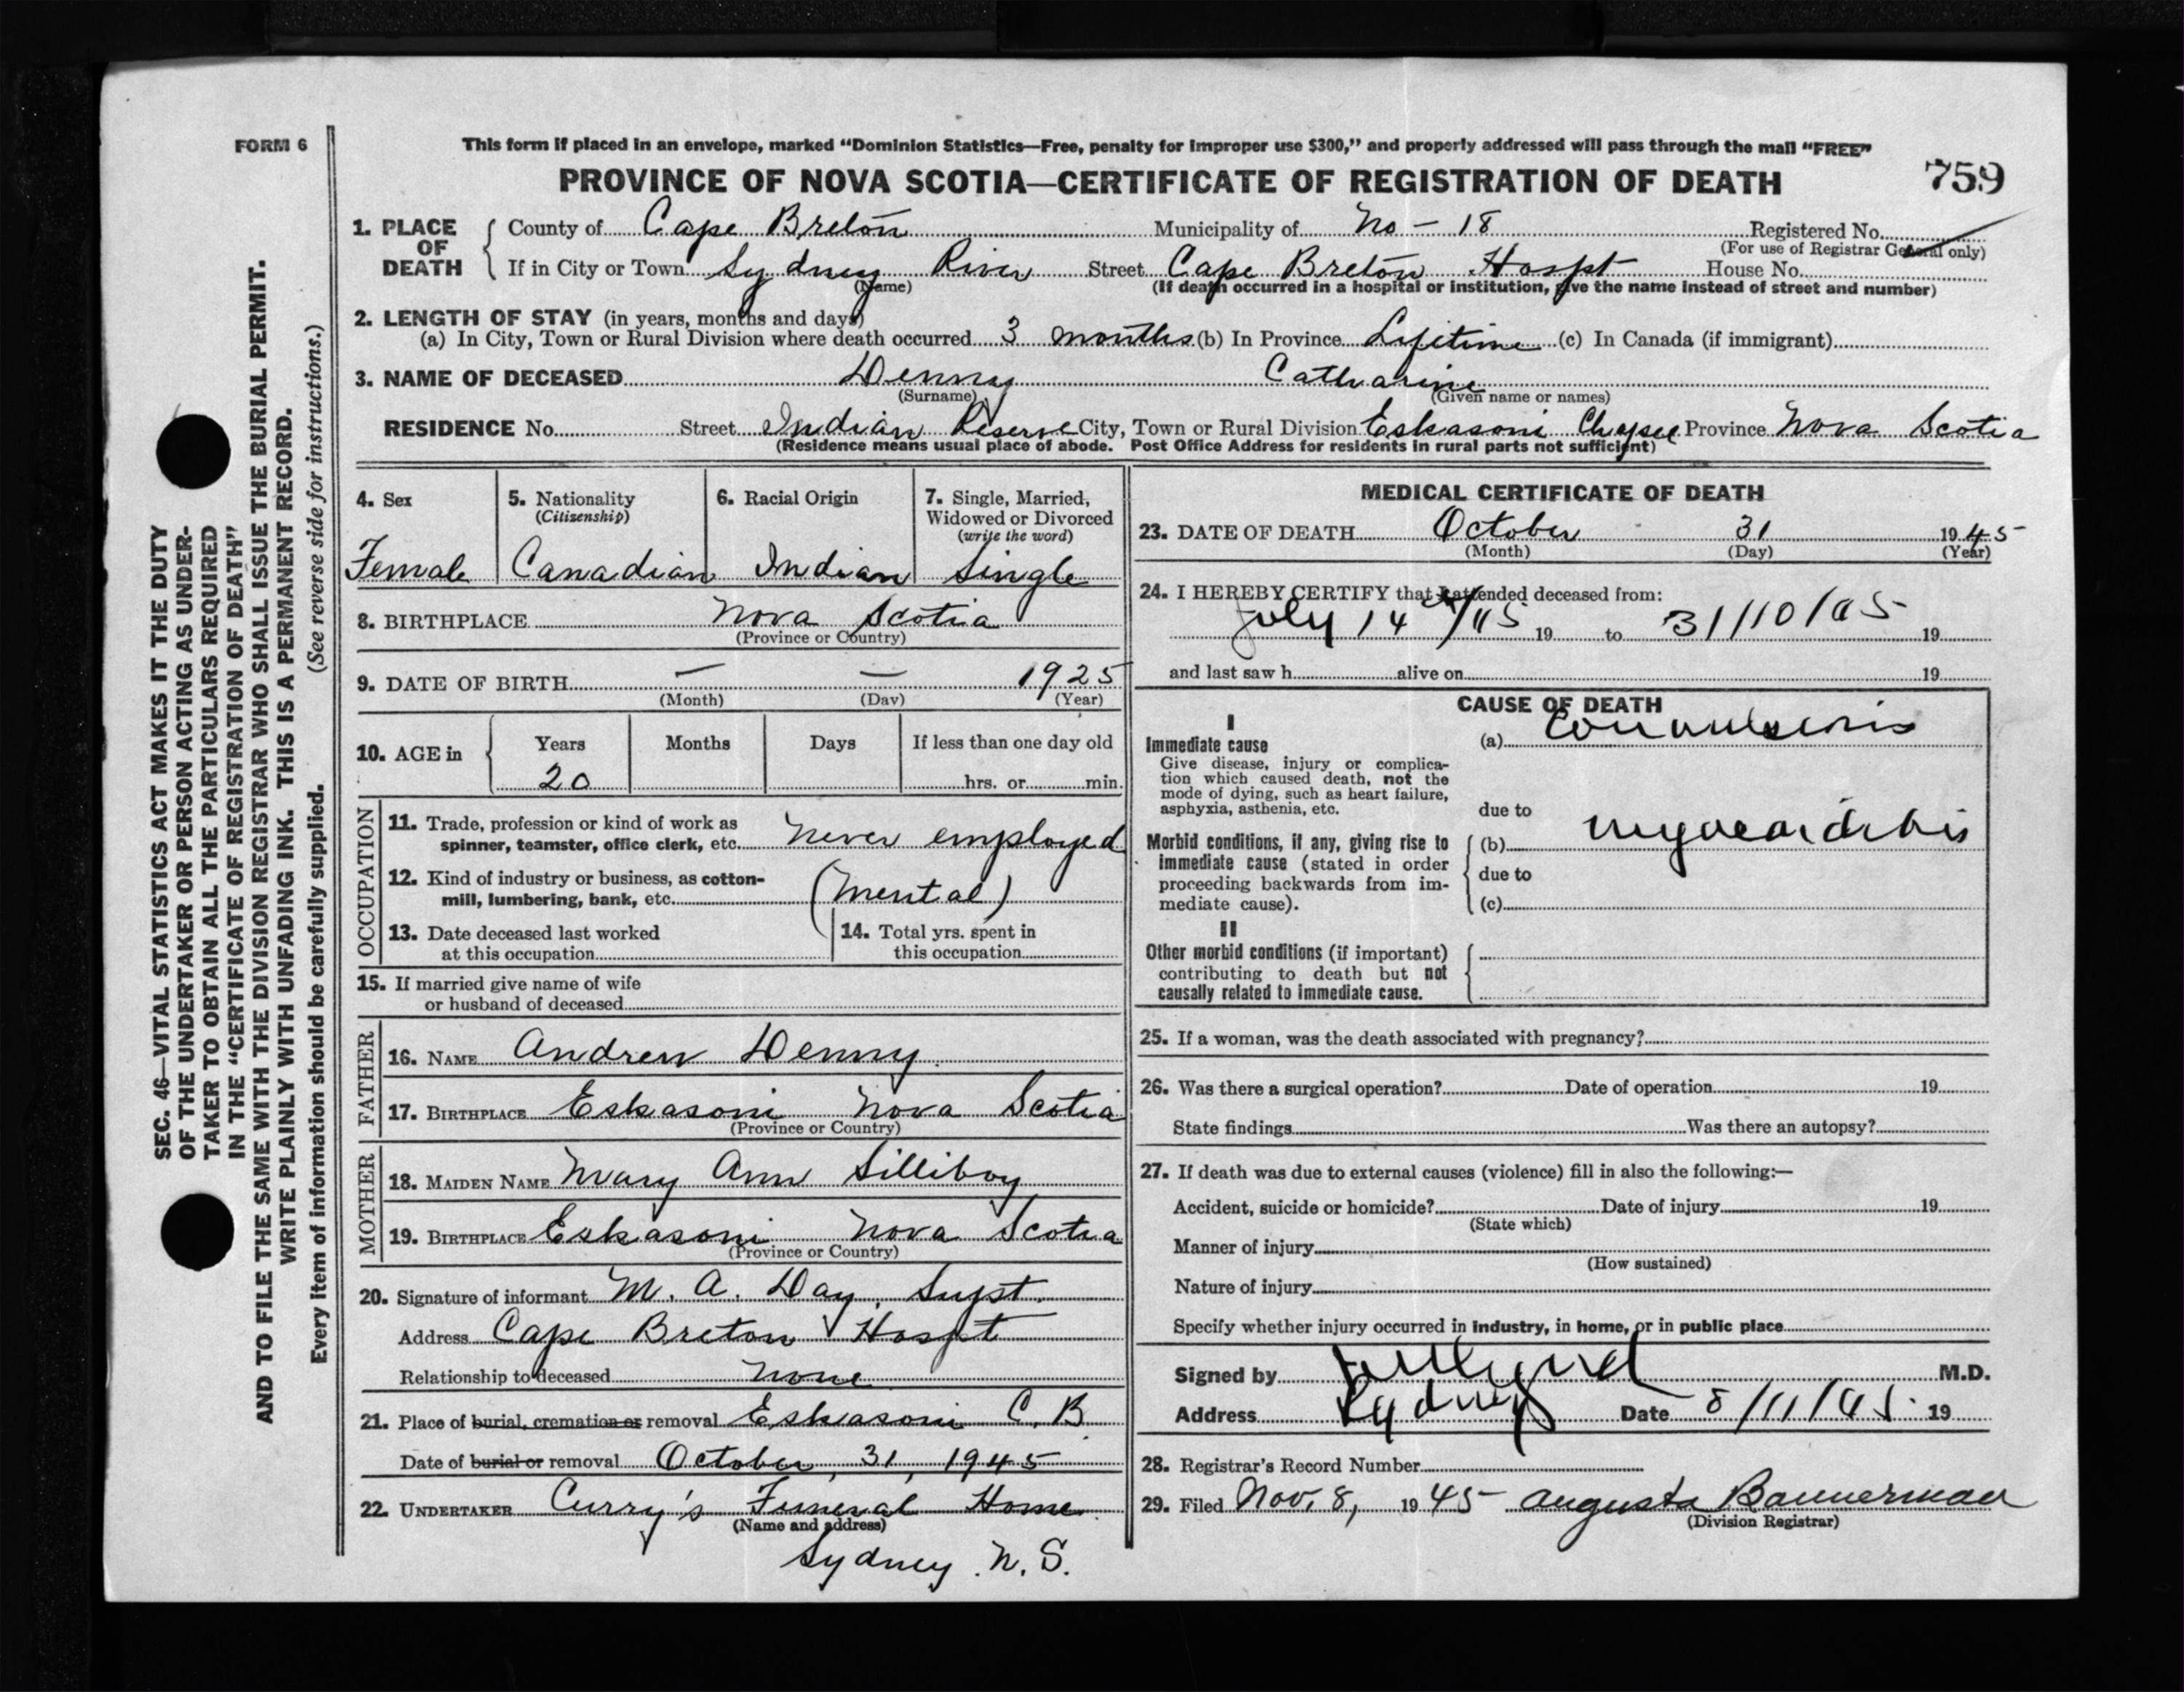 FORM 6
This form if placed in an envelope, marked "Dominion Statistics—Free, penalty for improper use $300," and properly addressed will pass through the mail "FREE"
PROVINCE OF NOVA SCOTIA—CERTIFICATE OF REGISTRATION OF DEATH
759
1. PLACE OF DEATH County of Cape Breton Municipality of No - 18 Registered No.
(For use of Registrar General only)
If in City or Town Sydney River Street Cape Breton Hospt House No.
(Name) (If death occurred in a hospital or institution, give the name instead of street and number)
2. LENGTH OF STAY (in years, months and days)
(a) In City, Town or Rural Division where death occurred 3 months (b) In Province Lifetime (c) In Canada (if immigrant)
3. NAME OF DECEASED Denny Catharine
(Surname) (Given name or names)
RESIDENCE No. Street Indian Reserve City, Town or Rural Division Eskasoni Province Nova Scotia
(Residence means usual place of abode. Post Office Address for residents in rural parts not sufficient)
4. Sex Female
5. Nationality (Citizenship) Canadian
6. Racial Origin Indian
7. Single, Married, Widowed or Divorced (write the word) Single
8. BIRTHPLACE Nova Scotia
(Province or Country)
9. DATE OF BIRTH — — 1925
(Month) (Day) (Year)
10. AGE in Years 20 Months Days If less than one day old
hrs. or min.
OCCUPATION
11. Trade, profession or kind of work as
spinner, teamster, office clerk, etc. Never employed
12. Kind of industry or business, as cotton-
mill, lumbering, bank, etc. (Mental)
13. Date deceased last worked
at this occupation
14. Total yrs. spent in
this occupation
15. If married give name of wife
or husband of deceased
FATHER
16. NAME Andrew Denny
17. BIRTHPLACE Eskasoni Nova Scotia
(Province or Country)
MOTHER
18. MAIDEN NAME Mary Ann Silliboy
19. BIRTHPLACE Eskasoni Nova Scotia
(Province or Country)
20. Signature of informant M. A. Day, Supt.
Address Cape Breton Hospt
Relationship to deceased None
21. Place of burial, cremation or removal Eskasoni C. B
Date of burial or removal October, 31, 1945
22. UNDERTAKER Curry's Funeral Home
(Name and address)
Sydney N. S.
MEDICAL CERTIFICATE OF DEATH
23. DATE OF DEATH October 31 1945
(Month) (Day) (Year)
24. I HEREBY CERTIFY that I attended deceased from:
July 14/45 19 to 31/10/45 19
and last saw h alive on 19
CAUSE OF DEATH
I
Immediate cause (a) Convulsions
Give disease, injury or complica-
tion which caused death, not the
mode of dying, such as heart failure,
asphyxia, asthenia, etc. due to
Morbid conditions, if any, giving rise to (b) myocarditis
immediate cause (stated in order
proceeding backwards from im- due to
mediate cause). (c)
II
Other morbid conditions (if important)
contributing to death but not
causally related to immediate cause.
25. If a woman, was the death associated with pregnancy?
26. Was there a surgical operation? Date of operation 19
State findings Was there an autopsy?
27. If death was due to external causes (violence) fill in also the following:—
Accident, suicide or homicide? Date of injury 19
(State which)
Manner of injury
(How sustained)
Nature of injury
Specify whether injury occurred in industry, in home, or in public place
Signed by M.D.
Address Sydney Date 8/11/45. 19
28. Registrar's Record Number
29. Filed Nov. 8, 1945 Augusta Bannerman
(Division Registrar)
SEC. 46—VITAL STATISTICS ACT MAKES IT THE DUTY
OF THE UNDERTAKER OR PERSON ACTING AS UNDER-
TAKER TO OBTAIN ALL THE PARTICULARS REQUIRED
IN THE "CERTIFICATE OF REGISTRATION OF DEATH"
AND TO FILE THE SAME WITH THE DIVISION REGISTRAR WHO SHALL ISSUE THE BURIAL PERMIT.
WRITE PLAINLY WITH UNFADING INK. THIS IS A PERMANENT RECORD.
Every item of information should be carefully supplied. (See reverse side for instructions.)